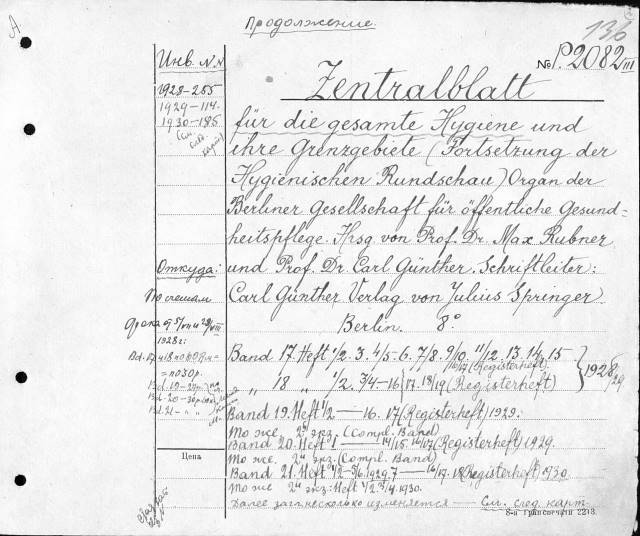 Продолжение.
136
№ P.2082 III
Инв. N.N
1928-265
1929-114.
1930-185
(См.
след.
карт)
Zentralblatt
für die gesamte Hygiene und
ihre Grenzgebiete (Fortsetzung der
Hygienischen Rundschau) Organ der
Berliner Gesellschaft für öffentliche Gesund-
heitspflege. Hrsg. von Prof. Dr. Max Rubner
und Prof. Dr. Carl Günther. Schriftleiter:
Carl Günther. Verlag von Julius Springer
Berlin. 8°
Откуда:
По счетам
1928 г.
Band 17. Heft 1/2. 3. 4/5. 6. 7/8. 9/10. 11/12. 13. 14. 15
16/17 (Registerheft)
„ 18 „ 1/2. 3/4-16 17. 18/19 (Registerheft) } 1928/29
Band 19. Heft 1/2 — 16. 17 (Registerheft) 1929.
То же. 2й экз. (Compl. Band)
Band 20. Heft 1 — 14/15. 16/17 (Registerheft) 1929.
То же. 2й экз. (Compl. Band)
Band 21. Heft 1/2 - 5/6. 1929. 7 — 16/17. 18 (Registerheft) 1930.
То же 2й экз: Heft 1/2. 3/4. 1930.
Далее загл. несколько изменяется — См. след. карт.
Цена
8-я Гранспечати 2213.